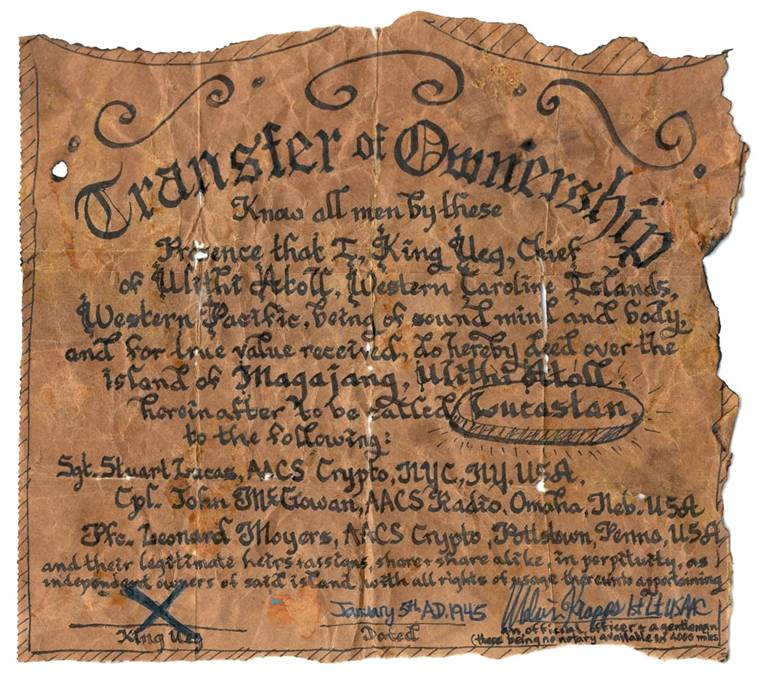 Transfer of Ownership
Know all men by these
Presence that I, King Ueg, Chief
of Ulithi Atoll, Western Caroline Islands,
Western Pacific, being of sound mind and body,
and for true value received, do hereby deed over the
island of Magajang, Ulithi Atoll,
hereinafter to be called Lucastan,
to the following:
Sgt. Stuart Lucas, AACS Crypto, NYC, NY. USA.
Cpl. John McGowan, AACS Radio, Omaha, Neb. USA
Pfc. Leonard Moyers, AACS Crypto, Pottstown, Penna, USA
and their legitimate heirs + assigns, share + share alike, in perpituity, as
independent owners of said island, with all rights of usage thereunto appertaining
X January 5th AD. 1945 1st Lt USAAC
King Ueg Dated an official officer + a gentleman
(there being no notary available in 4000 miles)